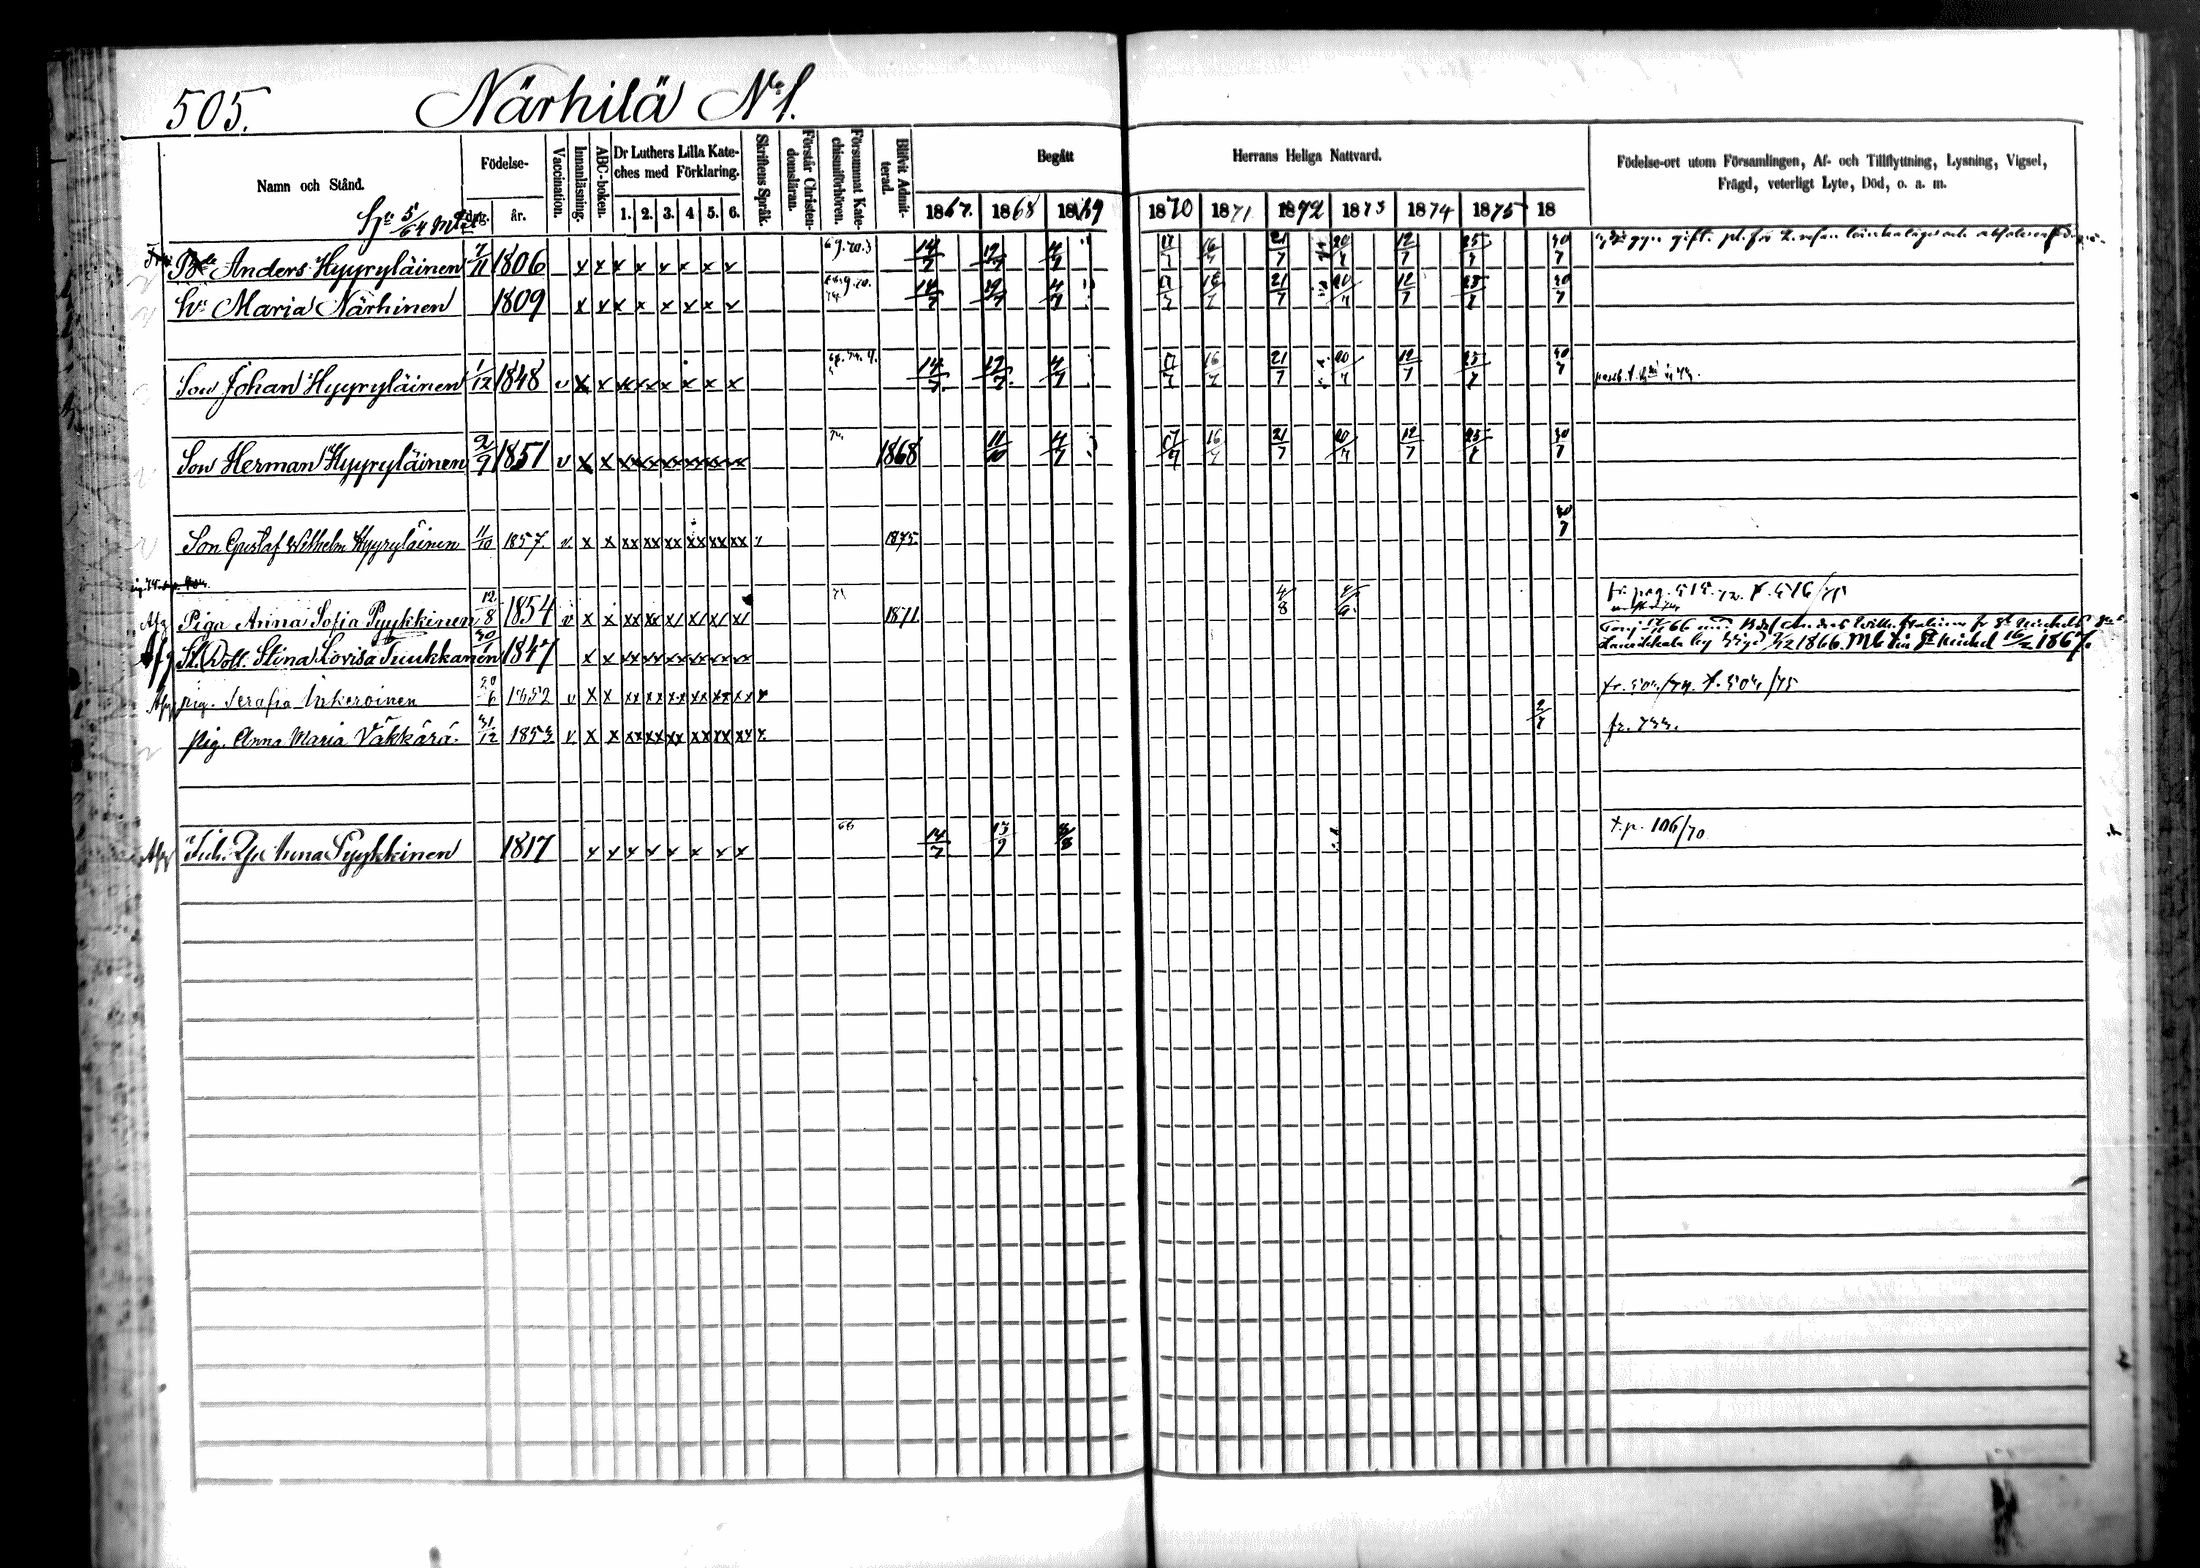 505. Närhilä No 1.
Namn och Stånd.
Födelse-
dag. år.
Vaccination.
Innanläsning.
ABC-boken.
Dr Luthers Lilla Kate-
ches med Förklaring.
1. 2. 3. 4. 5. 6.
Skriftens Språk.
Förstår Christen-
domsläran.
Försummat Kate-
chismiförhören.
Blifvit Admit-
terad.
Begått Herrans Heliga Nattvard.
1867. 1868 1869 1870 1871 1872 1873 1874 1875 18
Födelse-ort utom Församlingen, Af- och Tillflyttning, Lysning, Vigsel,
Frägd, veterligt Lyte, Död, o. a. m.
Anders Hyyryläinen 7/11 1806 x x x x x x x x 14/7 12/7 4/7 17/7 16/7 21/7 20/7 12/7 25/7 30/7
hu Maria Närhinen 1809 x x x x x x x x 14/7 12/7 4/7 17/7 16/7 21/7 20/7 12/7 25/7 30/7
Son Johan Hyyryläinen 1/12 1848 v x x xx xx x x x x 14/7 12/7 4/7 17/7 16/7 21/7 20/7 12/7 25/7 30/7
Son Herman Hyyryläinen 2/9 1851 v x x xx xx xx xx xx xx 1868 11/10 4/7 17/7 16/7 21/7 20/7 12/7 25/7 30/7
Son Gustaf Wilhelm Hyyryläinen 11/10 1857. v x x xx xx xx xx xx xx x 1875 30/7
Afg Piga Anna Sofia Pyykkinen 12/8 1854 v x x xx xx x/ x/ x/ x/ 1871 4/8 fr. pag. 515. 72. t. 516/75
Afg St. Dott. Stina Lovisa Tuukkanen 1847 x x xx xx xx xx xx xx 1866 1867.
Afg pig. Serafia Inkeroinen 1852 v x x xx xx xx xx xx xx x fr. 504/74. t. 504/75
pig. Anna Maria Väkkärä. 31/12 1853 v x x xx xx xx xx xx xx x 2/7 fr. 733.
Afg Anna Pyykkinen 1817 x x x x x x x x 66 14/7 13/9 8/8 t. p. 106/70